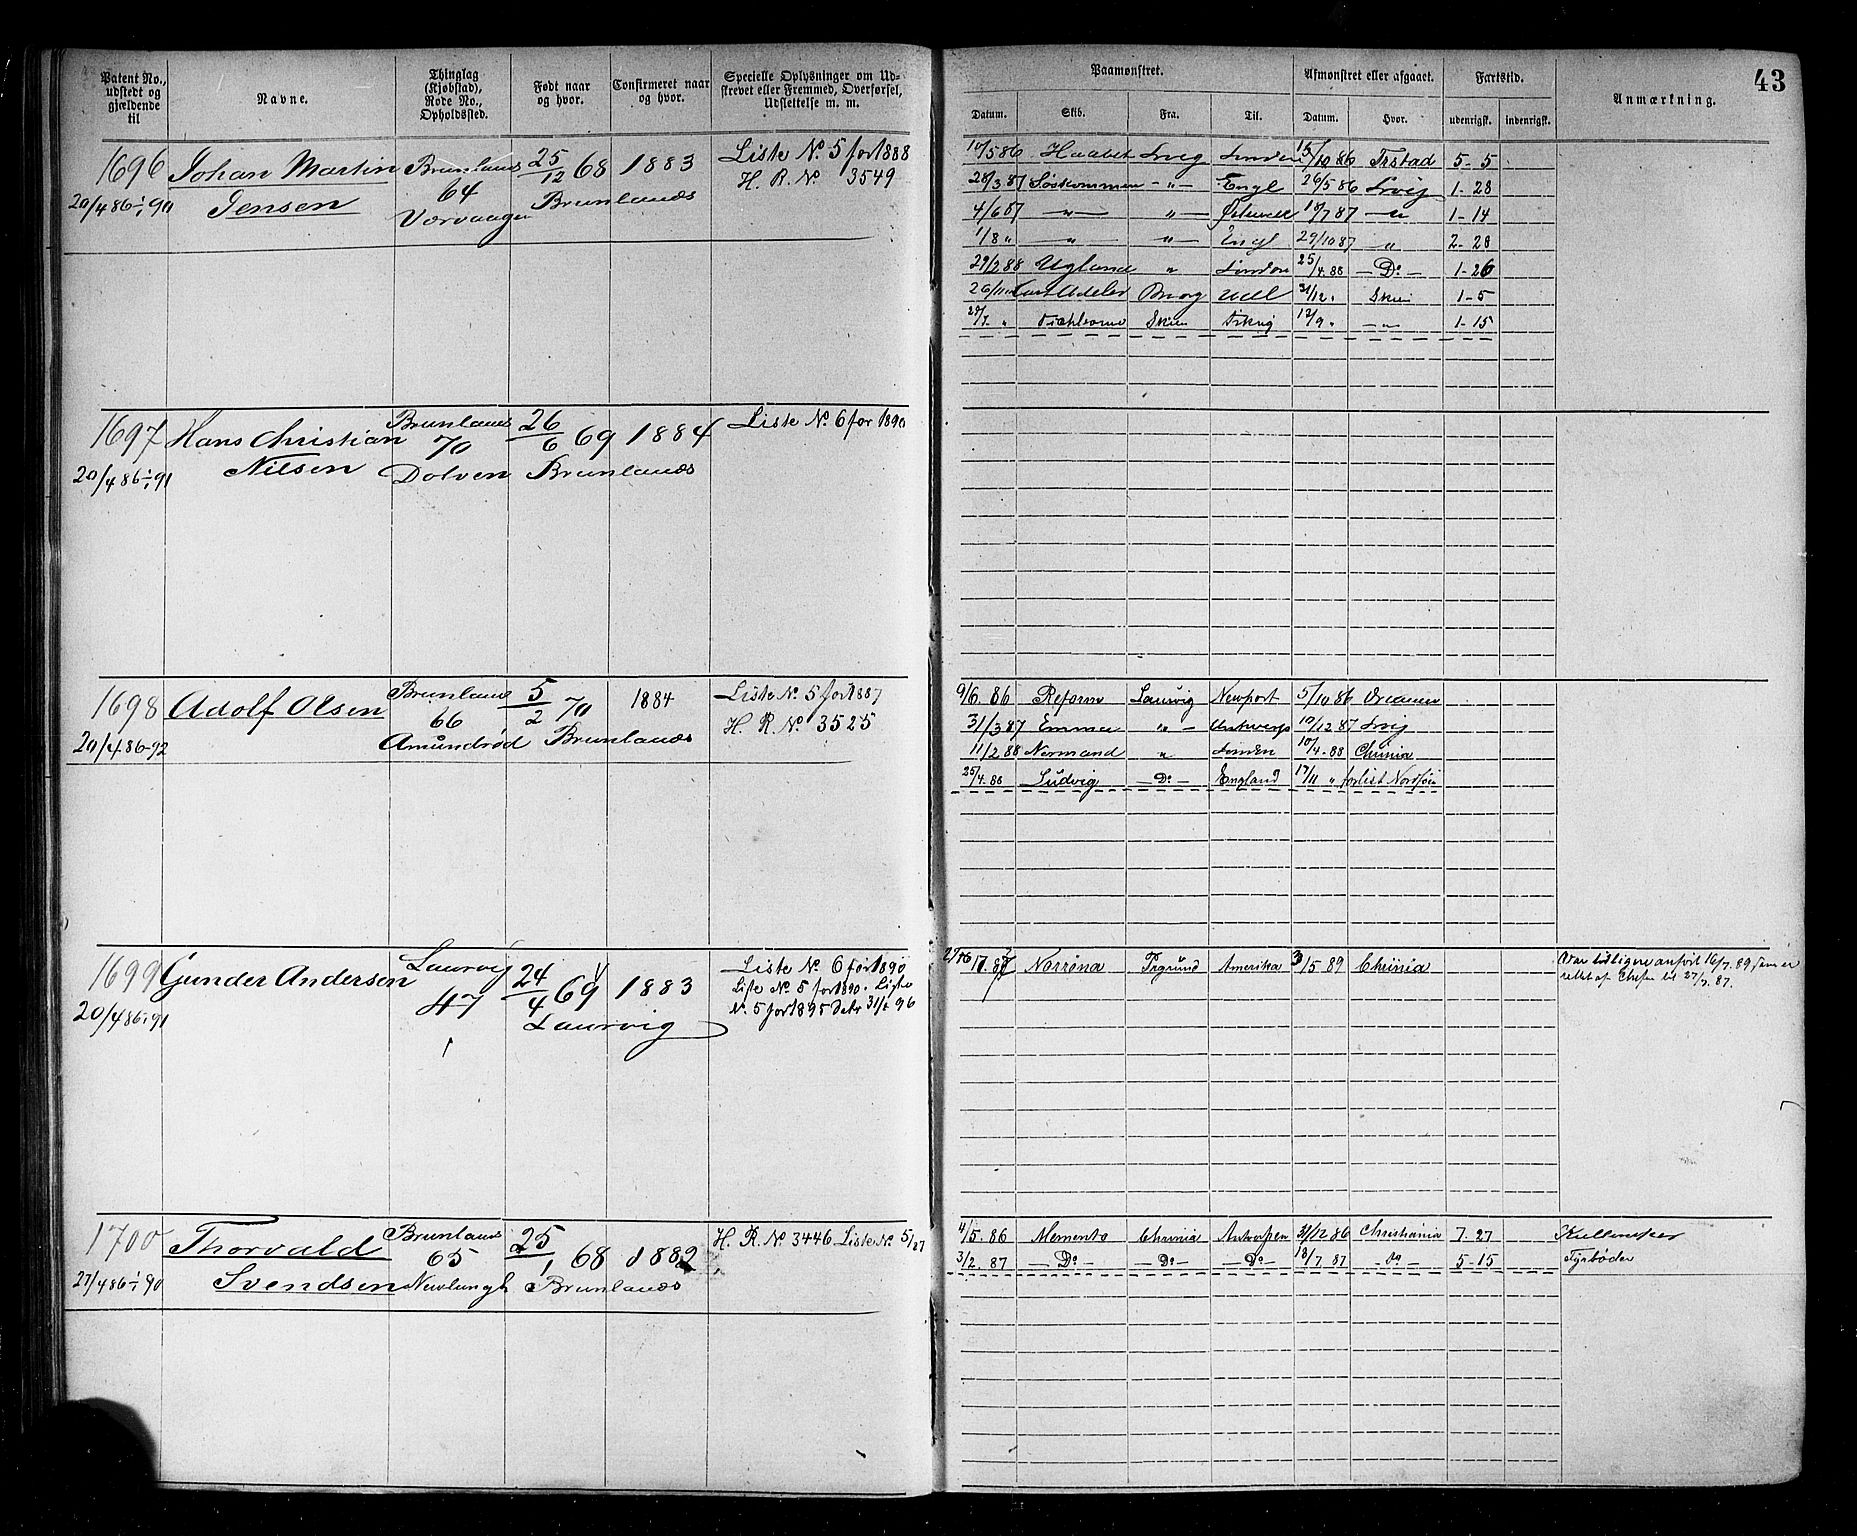 Patent No., udstedt og gjældende til
Navne.
Thinglag (Kjøbstad), Rode No., Opholdssted.
Født naar og hvor.
Confirmeret naar og hvor.
Specielle Oplysninger om Udskrevet eller Fremmed, Overførsel, Udslettelse m. m.
Paamønstret.
Afmønstret eller afgaaet.
Fartstid.
Anmærkning.
43
Datum. Skib. Fra. Til. Datum. Hvor. udenrigsk. indenrigsk.
1696 Johan Martin Brunlanes 25/12 68 1883 Liste No. 5 for 1888
20/4 86-1/1 90 Jensen 64 Brunlanes H. R. No. 3549
Værvaagen
10/5 86 Haabet Lrvig London 15/10 86 5-5
28/3 87 -"- Engl 26/5 86 Lrvig 1-28
4/6 87 -"- "- 18/7 87 -"- 1-14
1/8 " -"- "- Engl 29/10 87 " 2-28
29/2 88 Ugland " London 25/4 88 -Do- 1-26
26/11 1-5
" Skien 12/9 " -"- 1-15
1697 Hans Christian Brunlanes 26/6 69 1884 Liste No. 6 for 1890
20/4 86-1/1 91 Nilsen 70 Brunlanes
Dolven
1698 Adolf Olsen Brunlanes 5/2 70 1884 Liste No. 5 for 1887
20/4 86-92 66 Brunlanes H. R. No. 3525
Amundrød
9/6. 86 Reform Laurvig Newport 5/10 86 Drammen
31/3 87 Emma "- Antwerp 10/12 87 Lrvig
11/2 88 Normand " London 10/4-88 Chrinia
25/4. 88 Ludvig -Do- England 17/11 " forlist Nordsøen
1699 Gunder Andersen Laurvig 24/4 69 1883 Liste No. 6 for 1890
20/4 86-1/1 91 47 Laurvig Liste No. 5 for 1890. Liste
No. 5 for 1895 96
87 Norrøna Prgrund Amerika 3/5 89 Chrinia Var tidligere anført 16/7. 89, som er
rettet af Chefen til 27/7. 87.
1700 Thorvald Brunlanes 25/1 68 1882 H. R. No. 3446 Liste No. 5/87
27/4 86-1/1 90 Svendsen 65 Brunlanes
Nevlungh
4/5. 86 Memento Chrinia Antverpen 31/12 86 Christiania 7. 27 Kullemper
3/2. 87 -Do- -Do- -Do- 18/7 87 -Do- 5-15 Fyrbøder